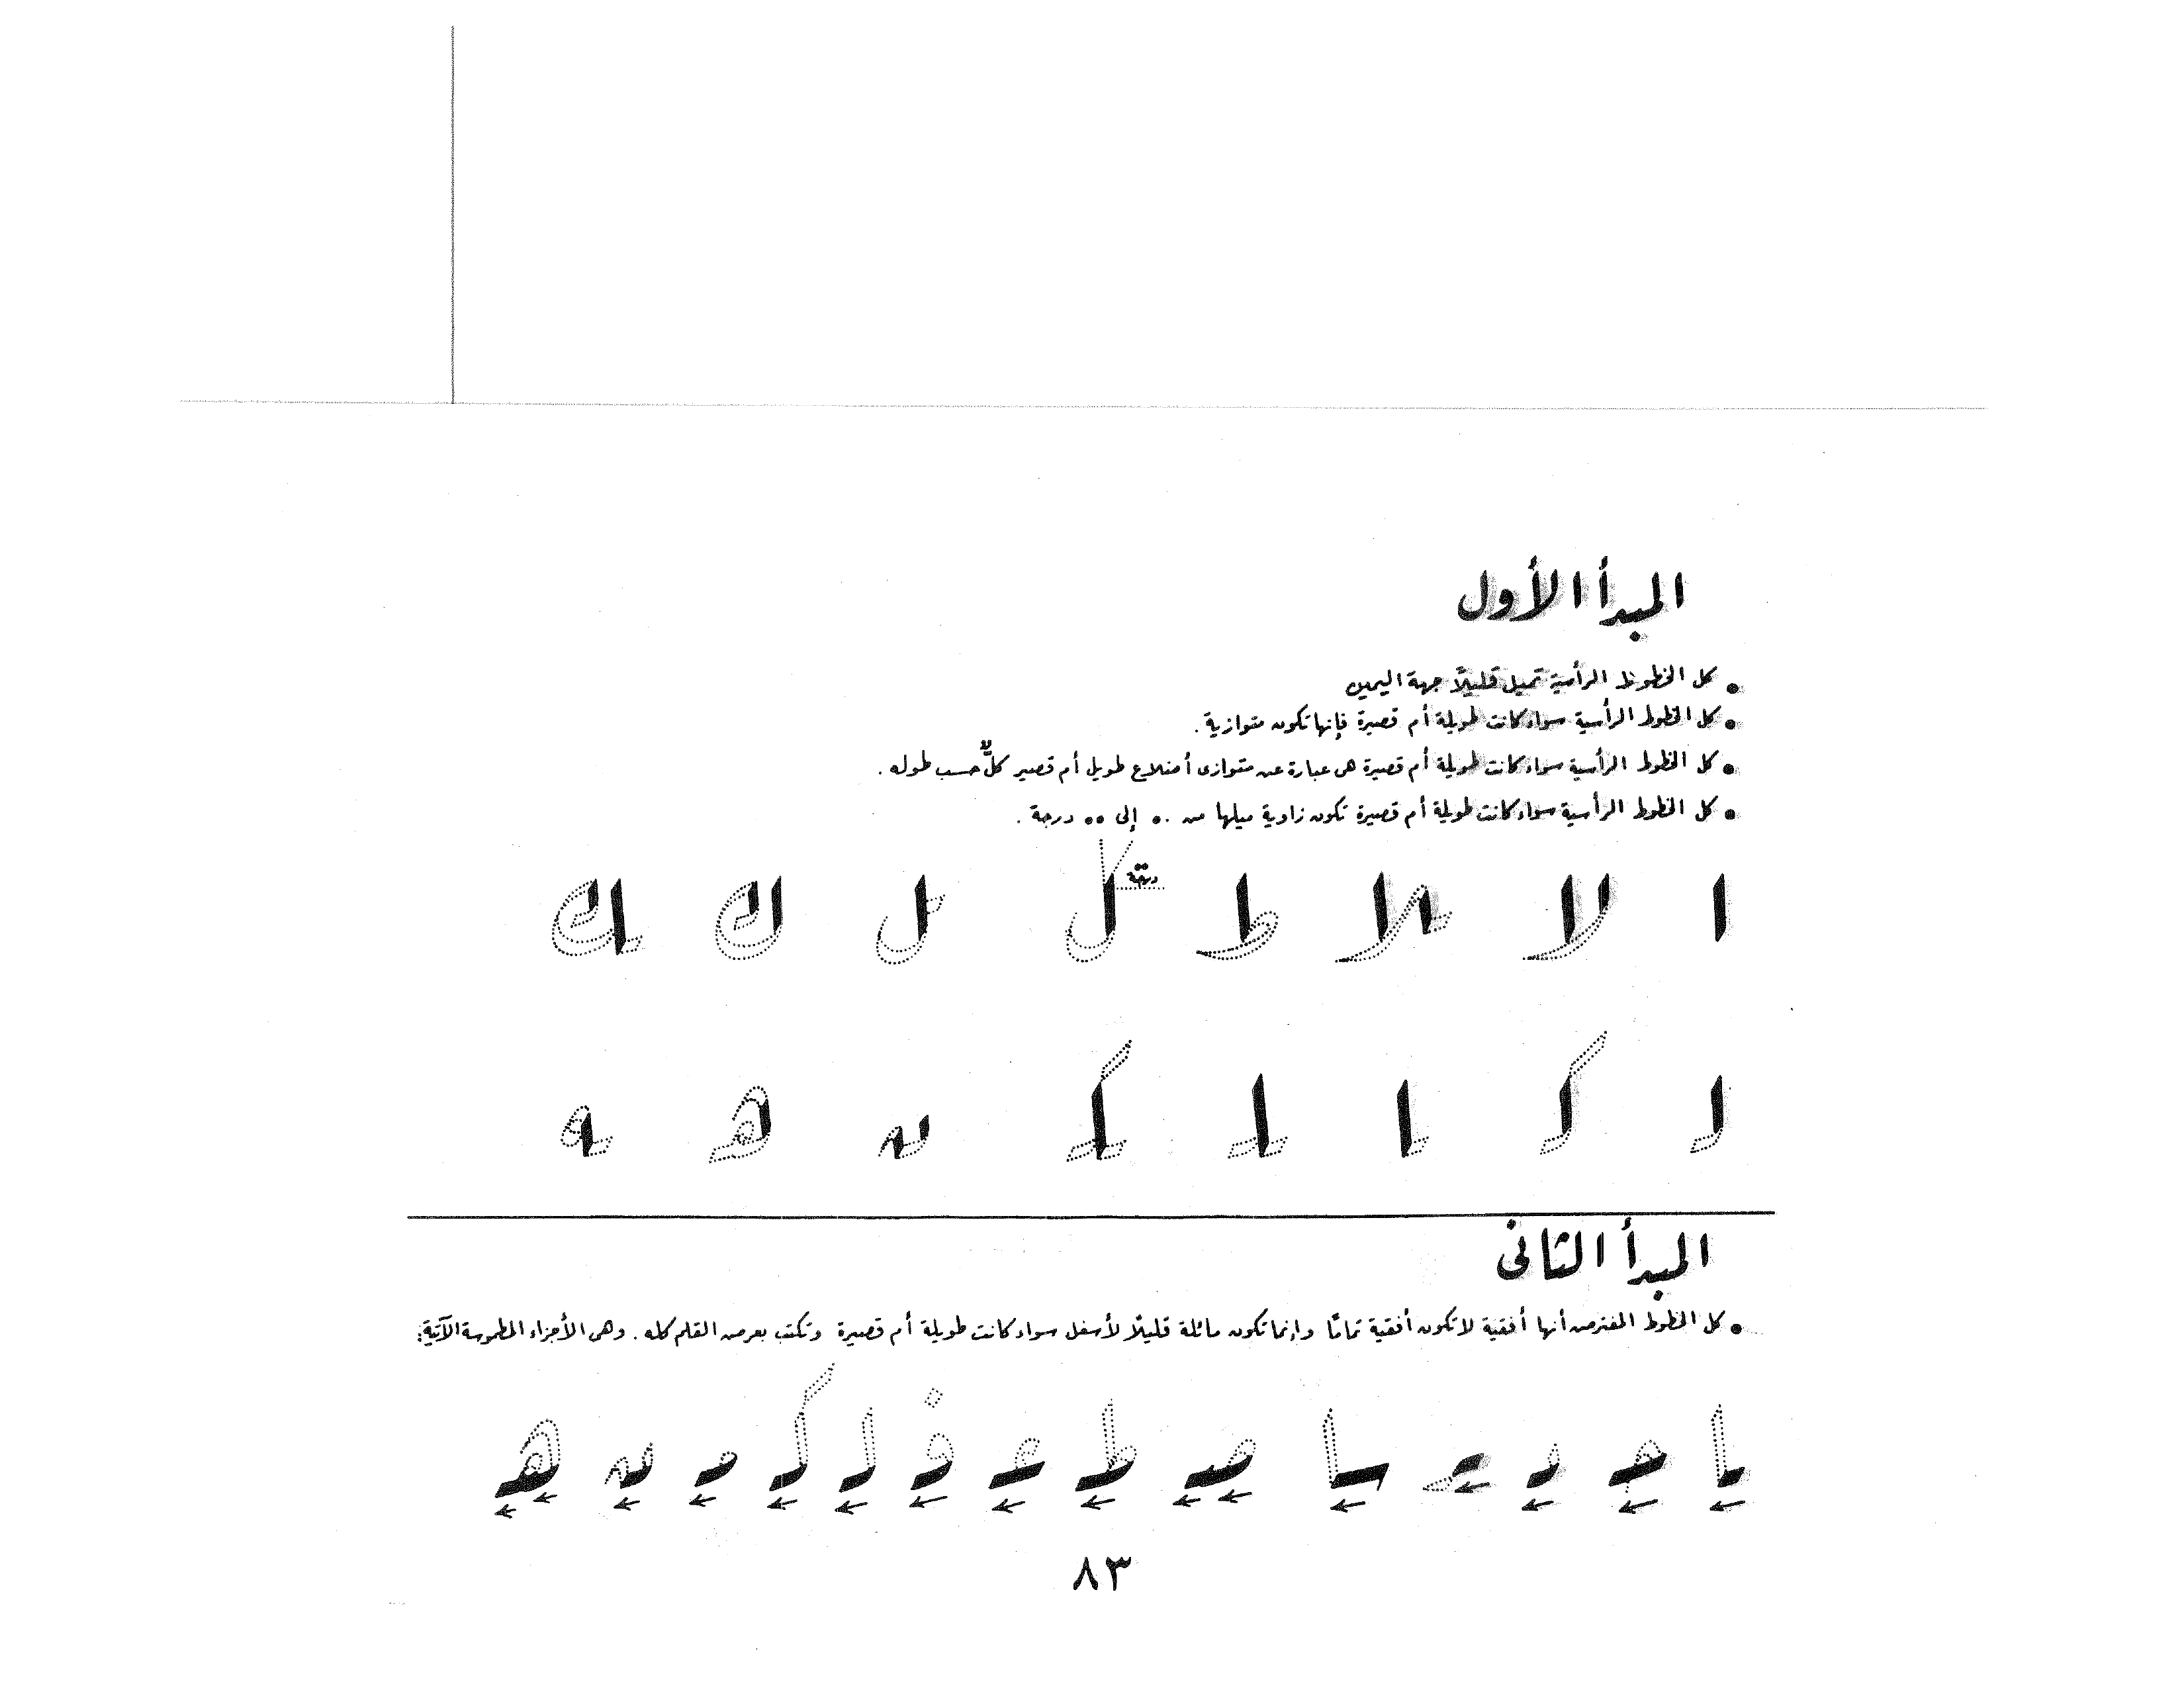 المبدأ الأول
• كل الخطوط الرأسية تميل قليلاً جهة اليمين
• كل الخطوط الرأسية سواء كانت طويلة أم قصيرة فإنها تكون متوازية .
• كل الخطوط الرأسية سواء كانت طويلة أم قصيرة هى عبارة عن متوازى أضلاع طويل أم قصير كلٌّ حسب طوله .
• كل الخطوط الرأسية سواء كانت طويلة أم قصيرة تكون زاوية ميلها من ٠٠ إلى ٠٠ درجة .
ا لا ملا ط ل ل ك لك
د كـ ا لـ كـ ن هـ ه
المبدأ الثانى
• كل الخطوط المفترض أنها أفقية لا تكون أفقية تمامًا وإنما تكون مائلة قليلًا لأسفل سواء كانت طويلة أم قصيرة وتكتب بعرض القلم كله . وهى الأجزاء المطموسة الآتية :
٨٣